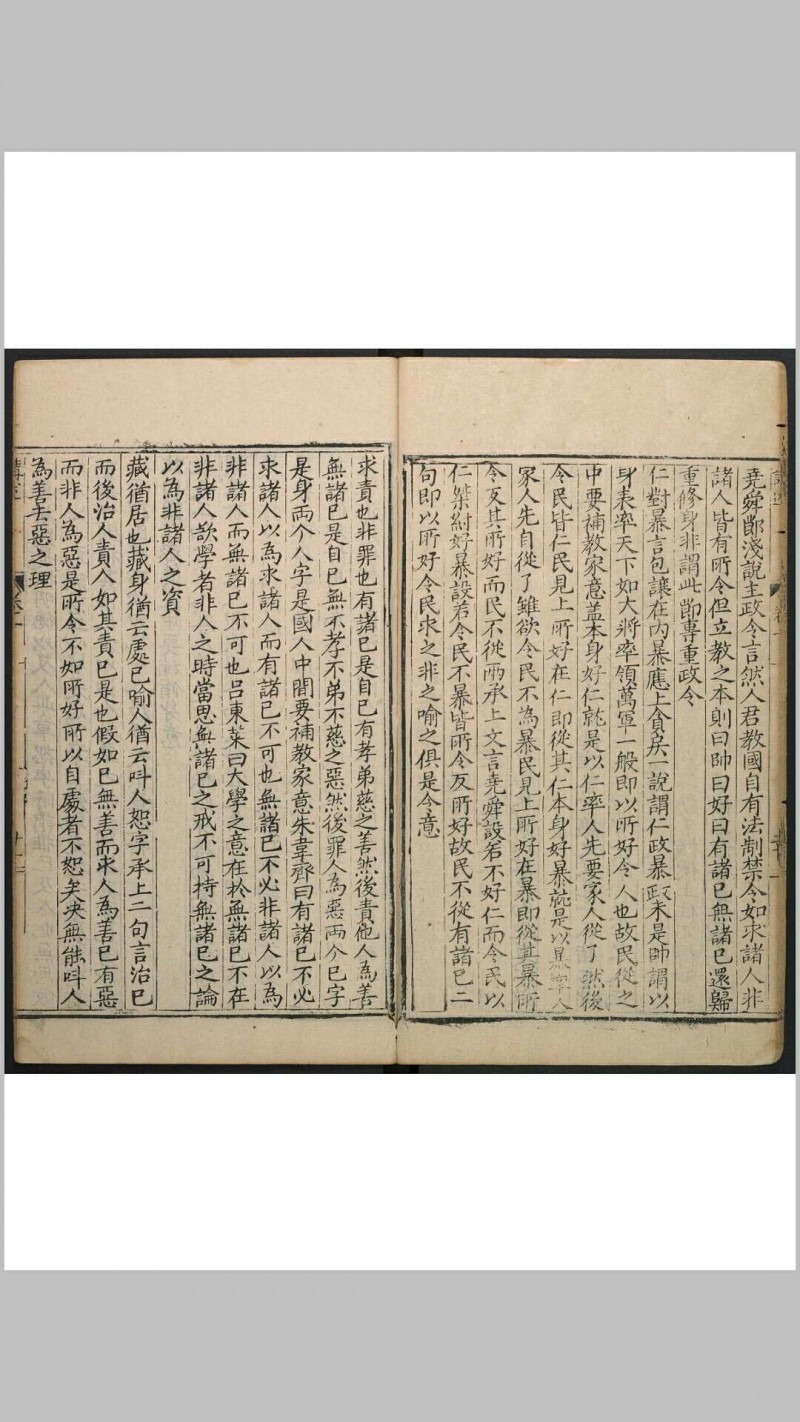 堯舜節淺說主政令言然人君教國自有法制禁令如求諸人非
諸人皆有所令但立教之本則曰帥曰好曰有諸己無諸己還歸
重修身非謂此節專重政令
仁對暴言包讓在內暴應上貪戾一說謂仁政暴政未是帥謂以
身表率天下如大將率領萬軍一般即以所好令人也故民從之
中要補教家意盖本身好仁就是以仁率人先要家人從了然後
令民皆仁民見上所好在仁即從其仁本身好暴就是以暴率人
家人先自從了雖欲令民不為暴民見上所好在暴即從其暴所
令反其所好而民不從兩承上文言堯舜設若不好仁而令民以
仁桀紂好暴設若令民不暴皆所令反所好故民不從有諸己二
句即以所好令民求之非之喻之俱是令意
求責也非罪也有諸己是自己有孝弟慈之善然後責他人為善
無諸己是自己無不孝不弟不慈之惡然後罪人為惡兩个己字
是身兩个人字是國人中間要補教家意朱韋齊曰有諸己不必
求諸人以為求諸人而有諸己不可也無諸己不必非諸人以為
非諸人而無諸己不可也呂東萊曰大學之意在於無諸己不在
非諸人欲學者非人之時當思無諸己之戒不可持無諸己之論
以為非諸人之資
藏猶居也藏身猶云處己喻人猶云呌人恕字承上二句言治己
而後治人責人如其責己是也假如己無善而求人為善己有惡
而非人為惡是所令不如所好所以自處者不恕矣決無能呌人
為善去惡之理